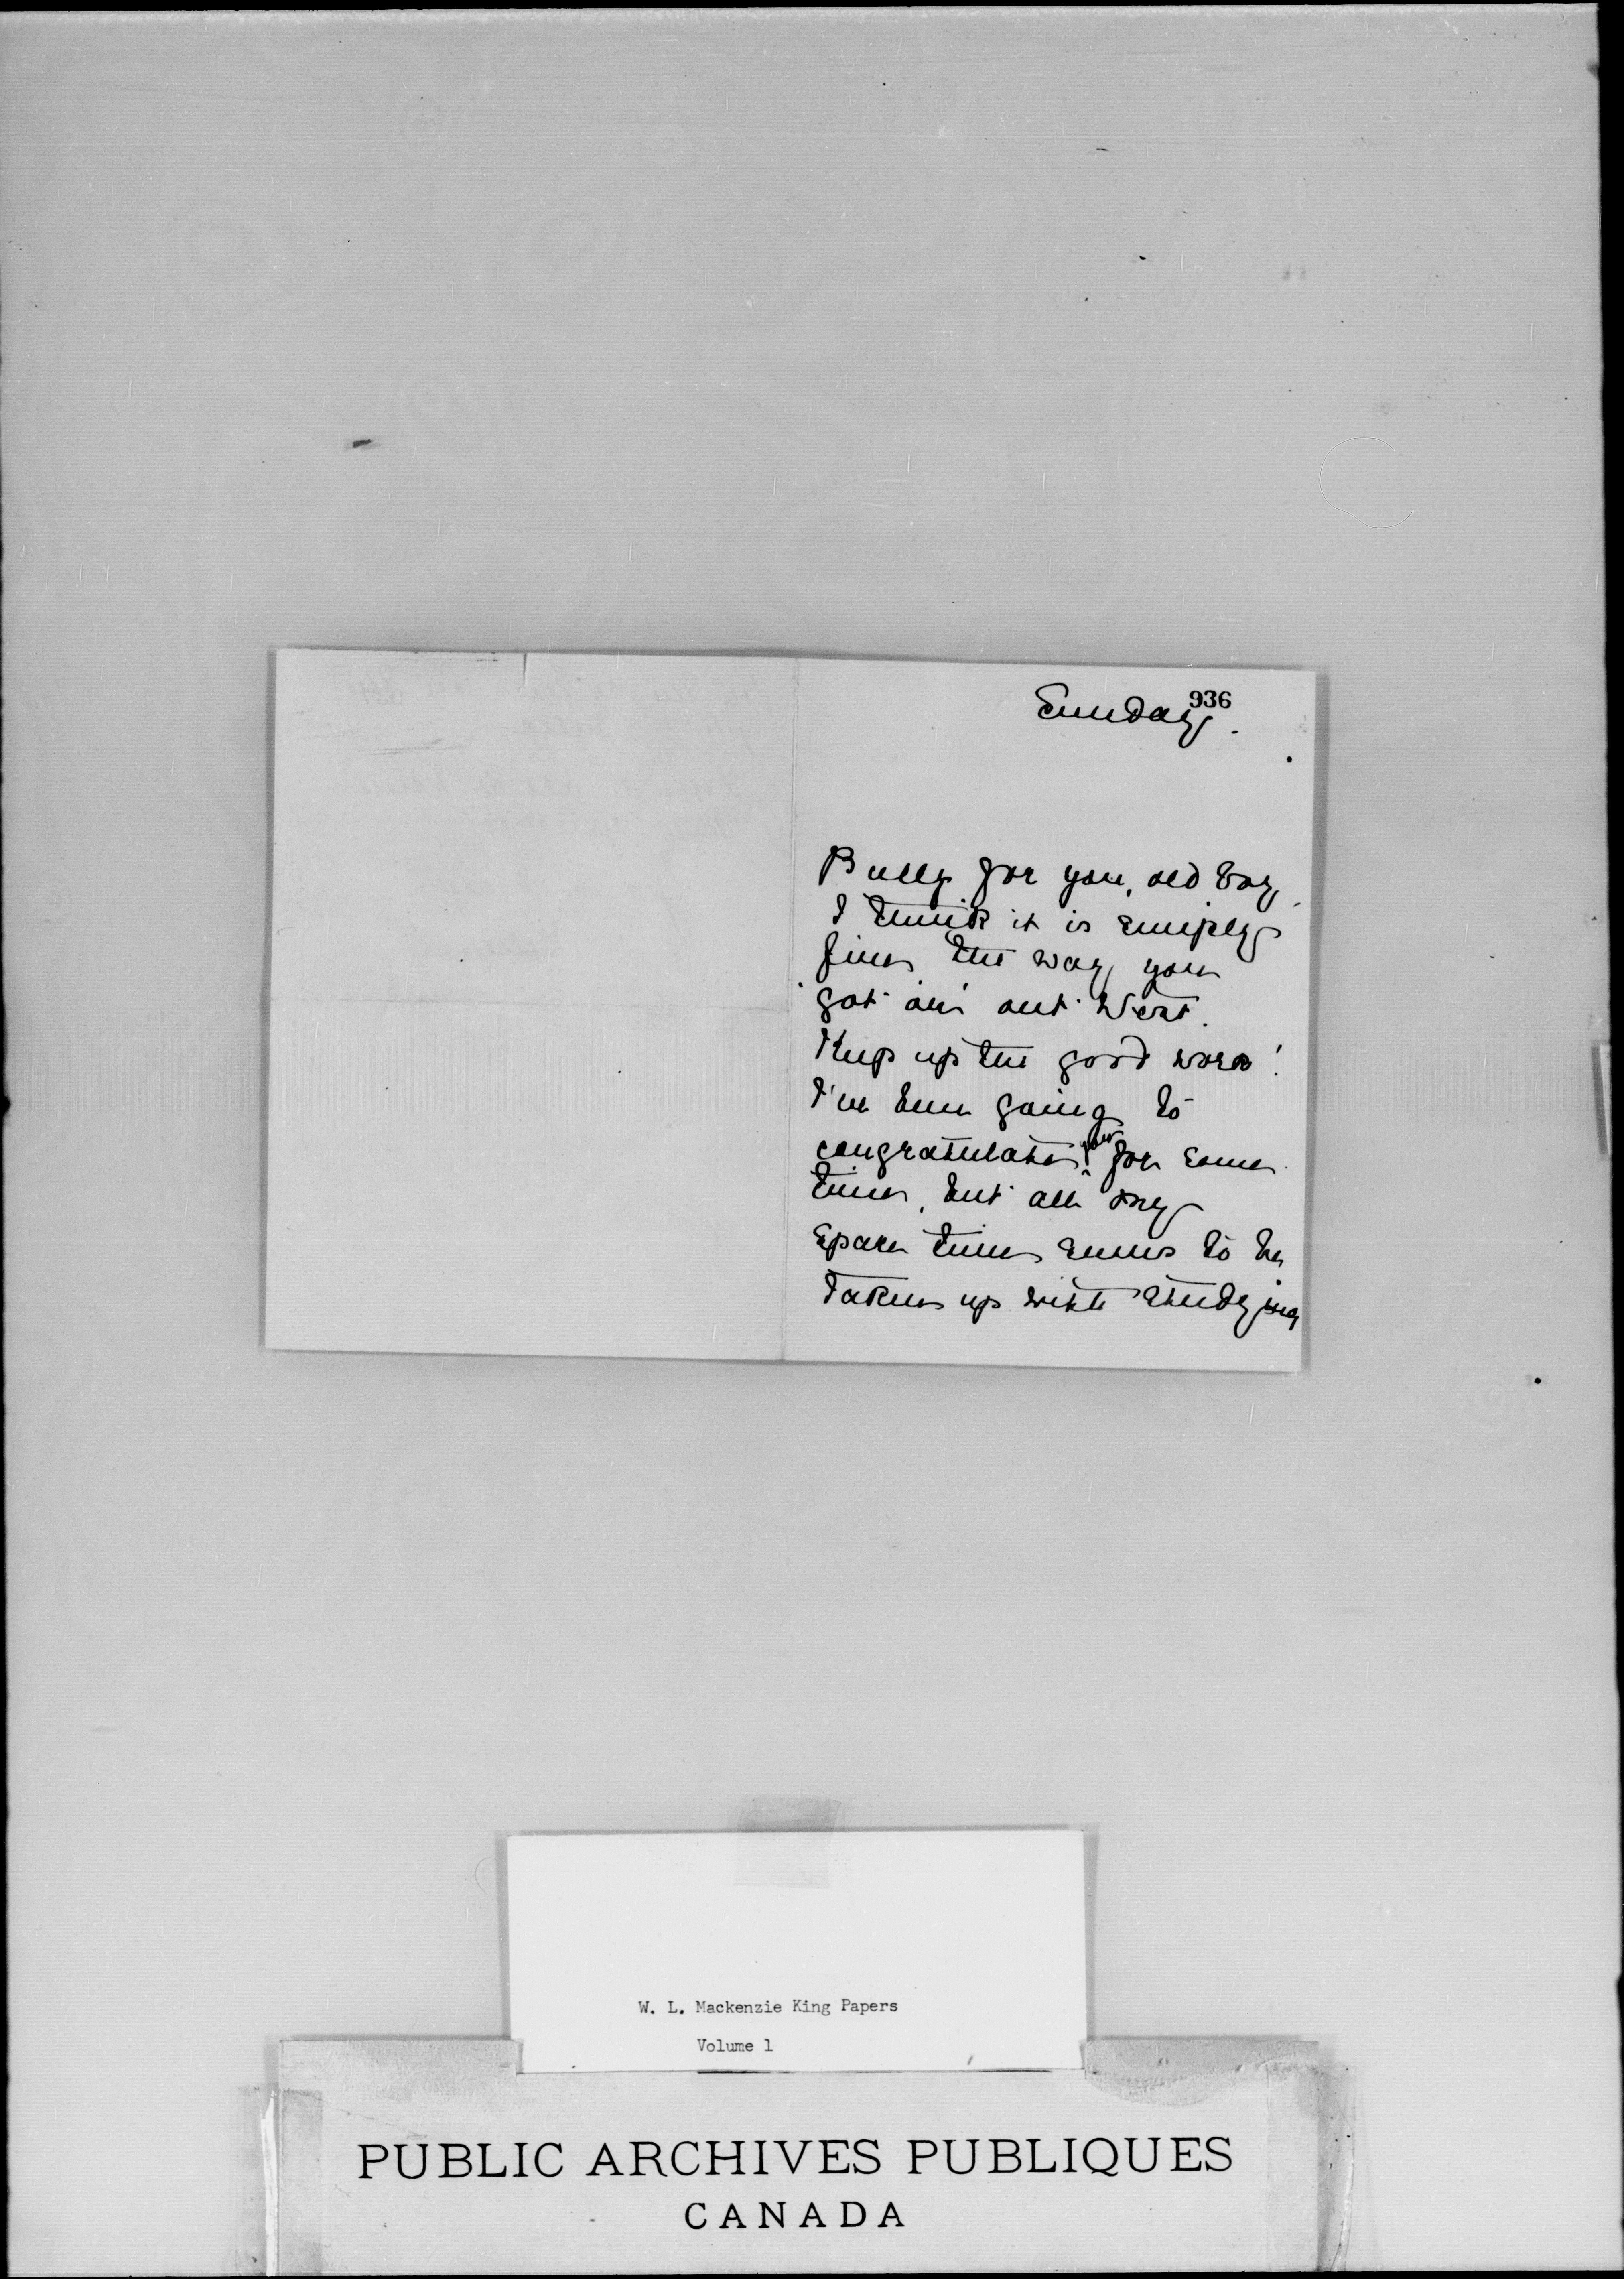 936
Sunday.
Bully for you, old boy,
I think it is simply
fine the way you
"got in" out West.
Keep up the good work!
I've been going to
congratulate you for some
time, but all my
spare time seems to be
taken up with studying
W. L. Mackenzie King Papers
Volume 1
PUBLIC ARCHIVES PUBLIQUES
CANADA